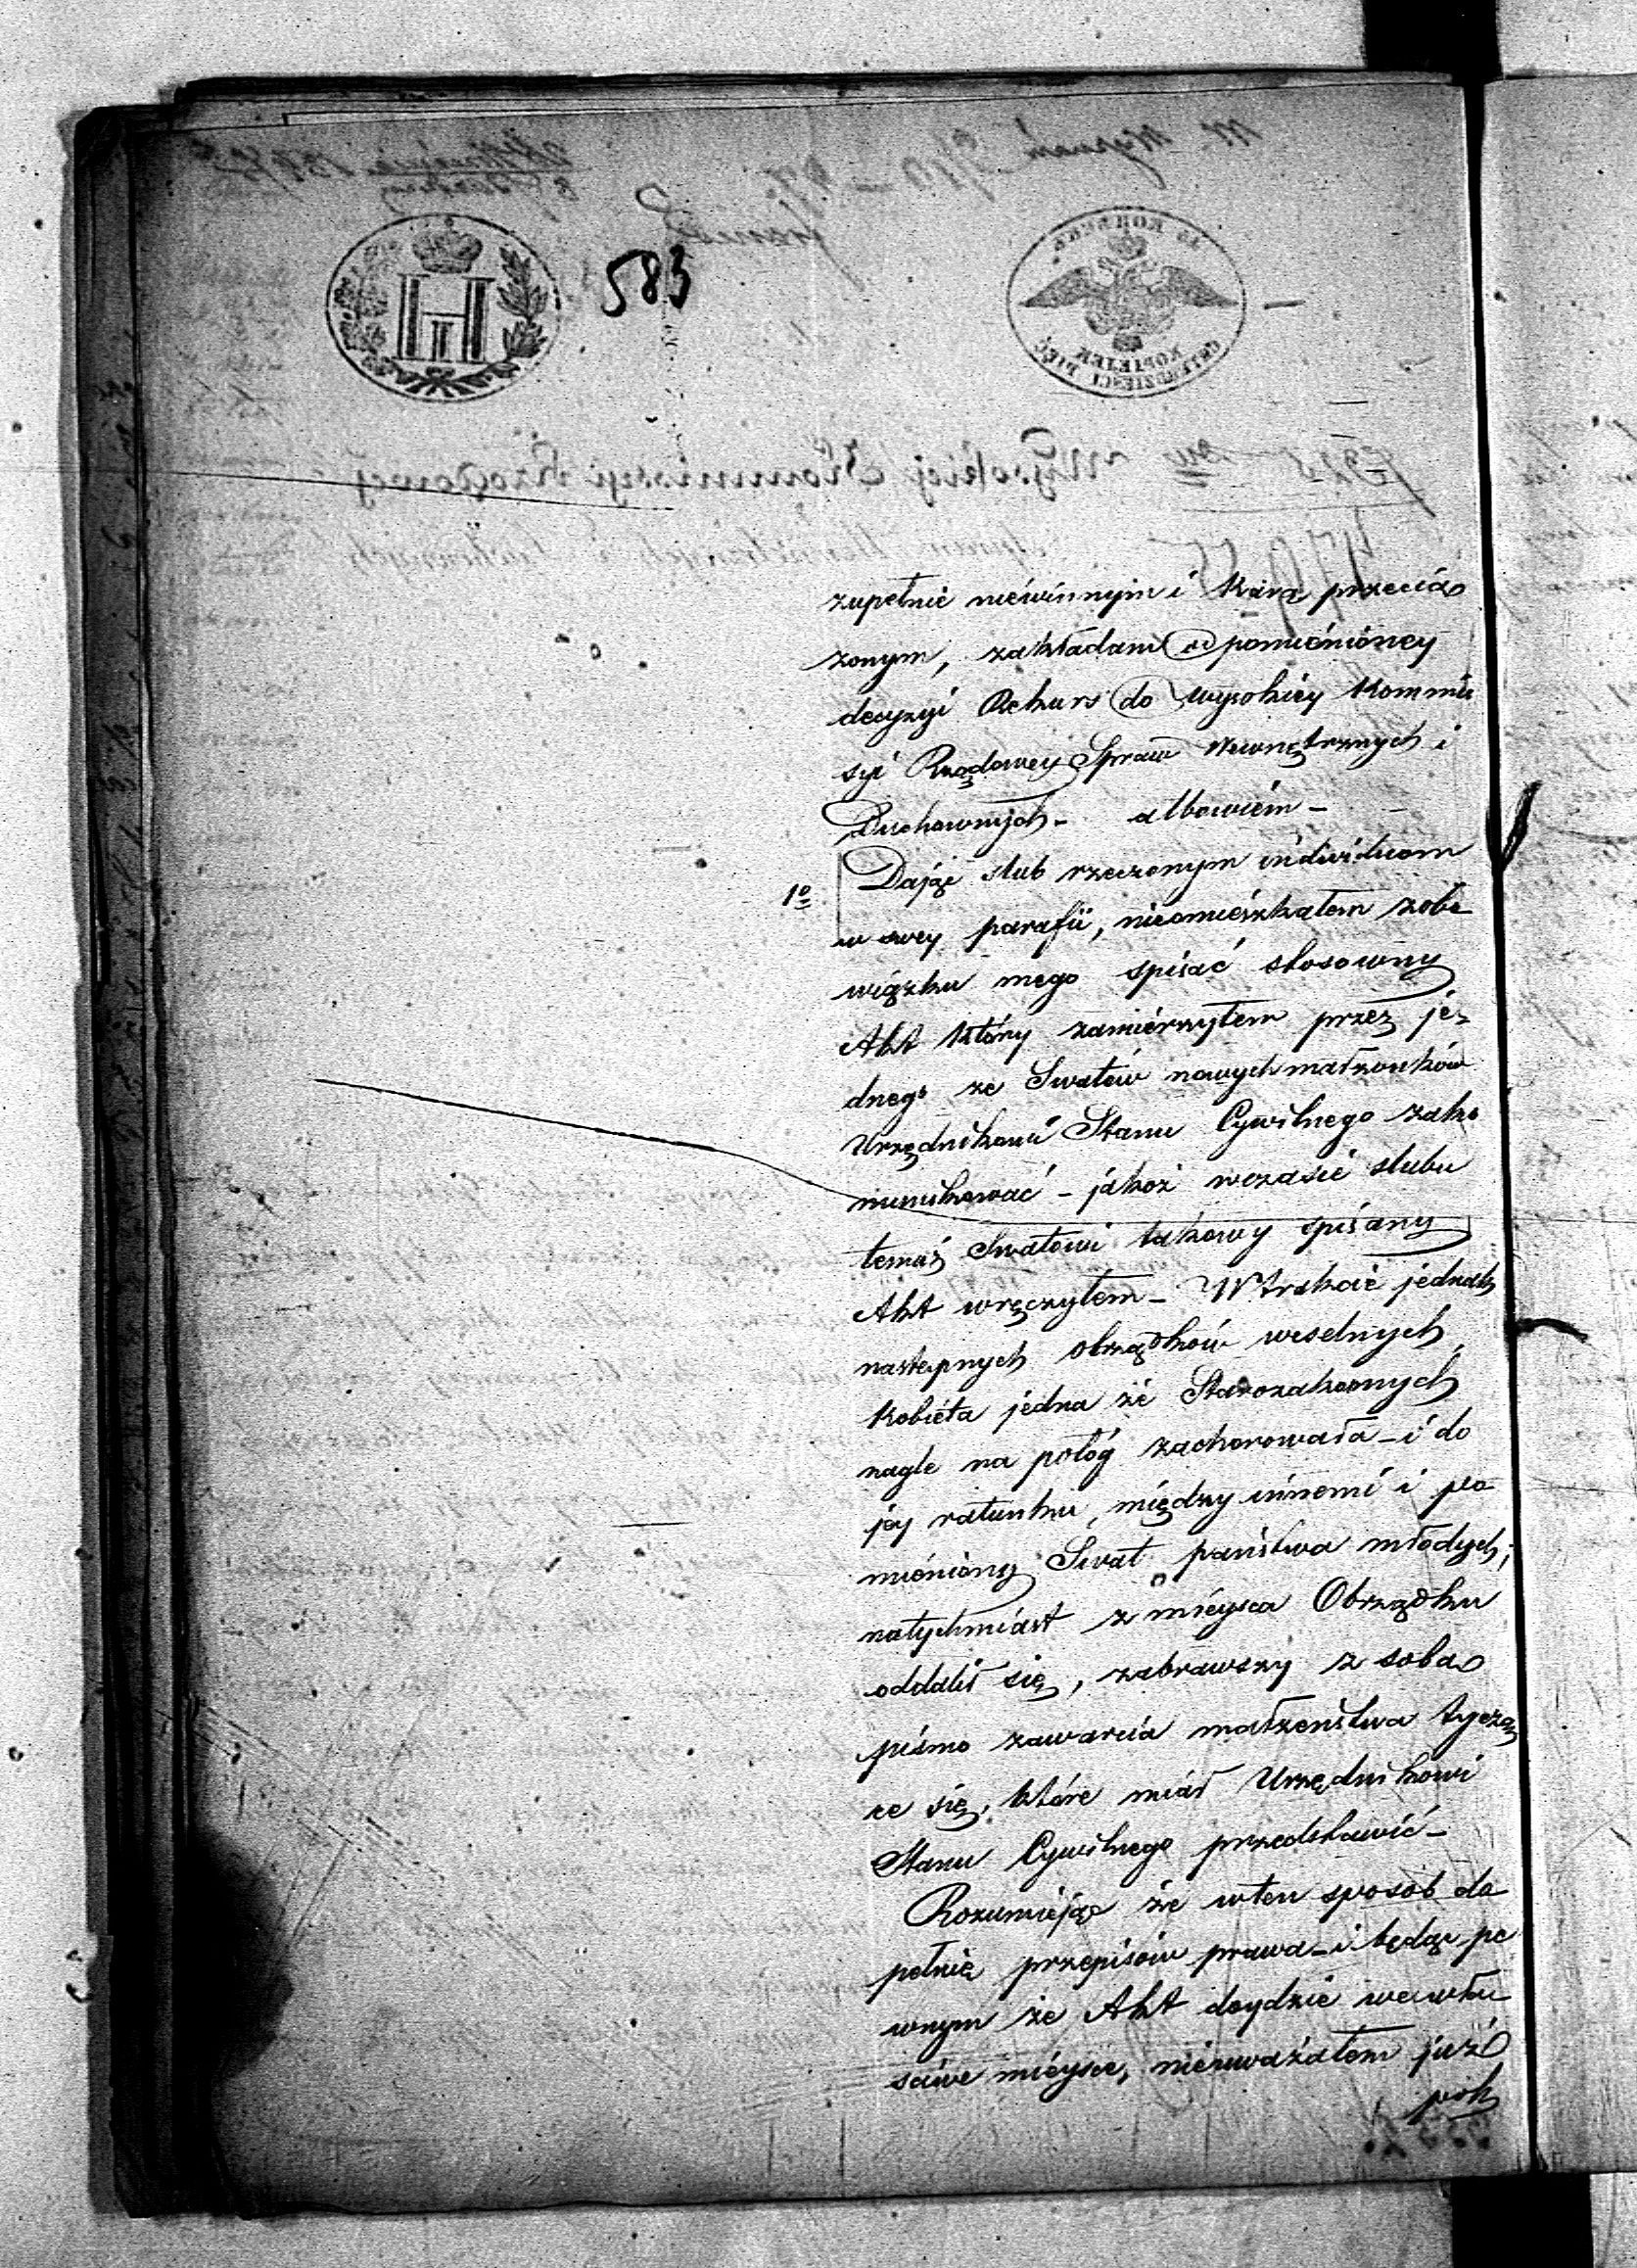 583
45 KOPEEKЪ
CZTERDZIEŚCI PIĘĆ KOPIEIEK
zupełnie niéwinnym i karą przecią
żonym, zakładam od pomieńioney
decyzyi Rekurs do wysokiey Kommis
syi Rządowey Spraw Wewnętrznych i
Duchownych - albowiém -
1º Dając slub rzeczonym individuom
w swey parafii, nieomieszkałem zobo
wiązku mego spisać stosowny
Akt który zamiérzyłem przez je-
dnego ze Swatów nowych małżonków
Urzędnikowi Stanu Cywilnego zako
munikować - jakoż wczasie slubu
temuż Swatowi takowy spisany
Akt wręczyłem - W trakcie jednak
następnych obrządków weselnych,
Kobiéta jedna ze Starozakonnych
nagle na połóg zachorowała - i do
jey ratunku, między innemi i po
mieniony Swat państwa młodych,
natychmiast z mieysca Obrządku
oddalił się, zabrawszy z sobą
pismo zawarcia małżeństwa tyczą
ce się, które miał Urzędnikowi
Stanu Cywilnego przedstawić -
Rozumiejąc że wten sposob do
pełnię przepisów prawa - i będąc pe
wnym że Akt doydzie wewłaś
ciwe mieysce, nieuważałem już